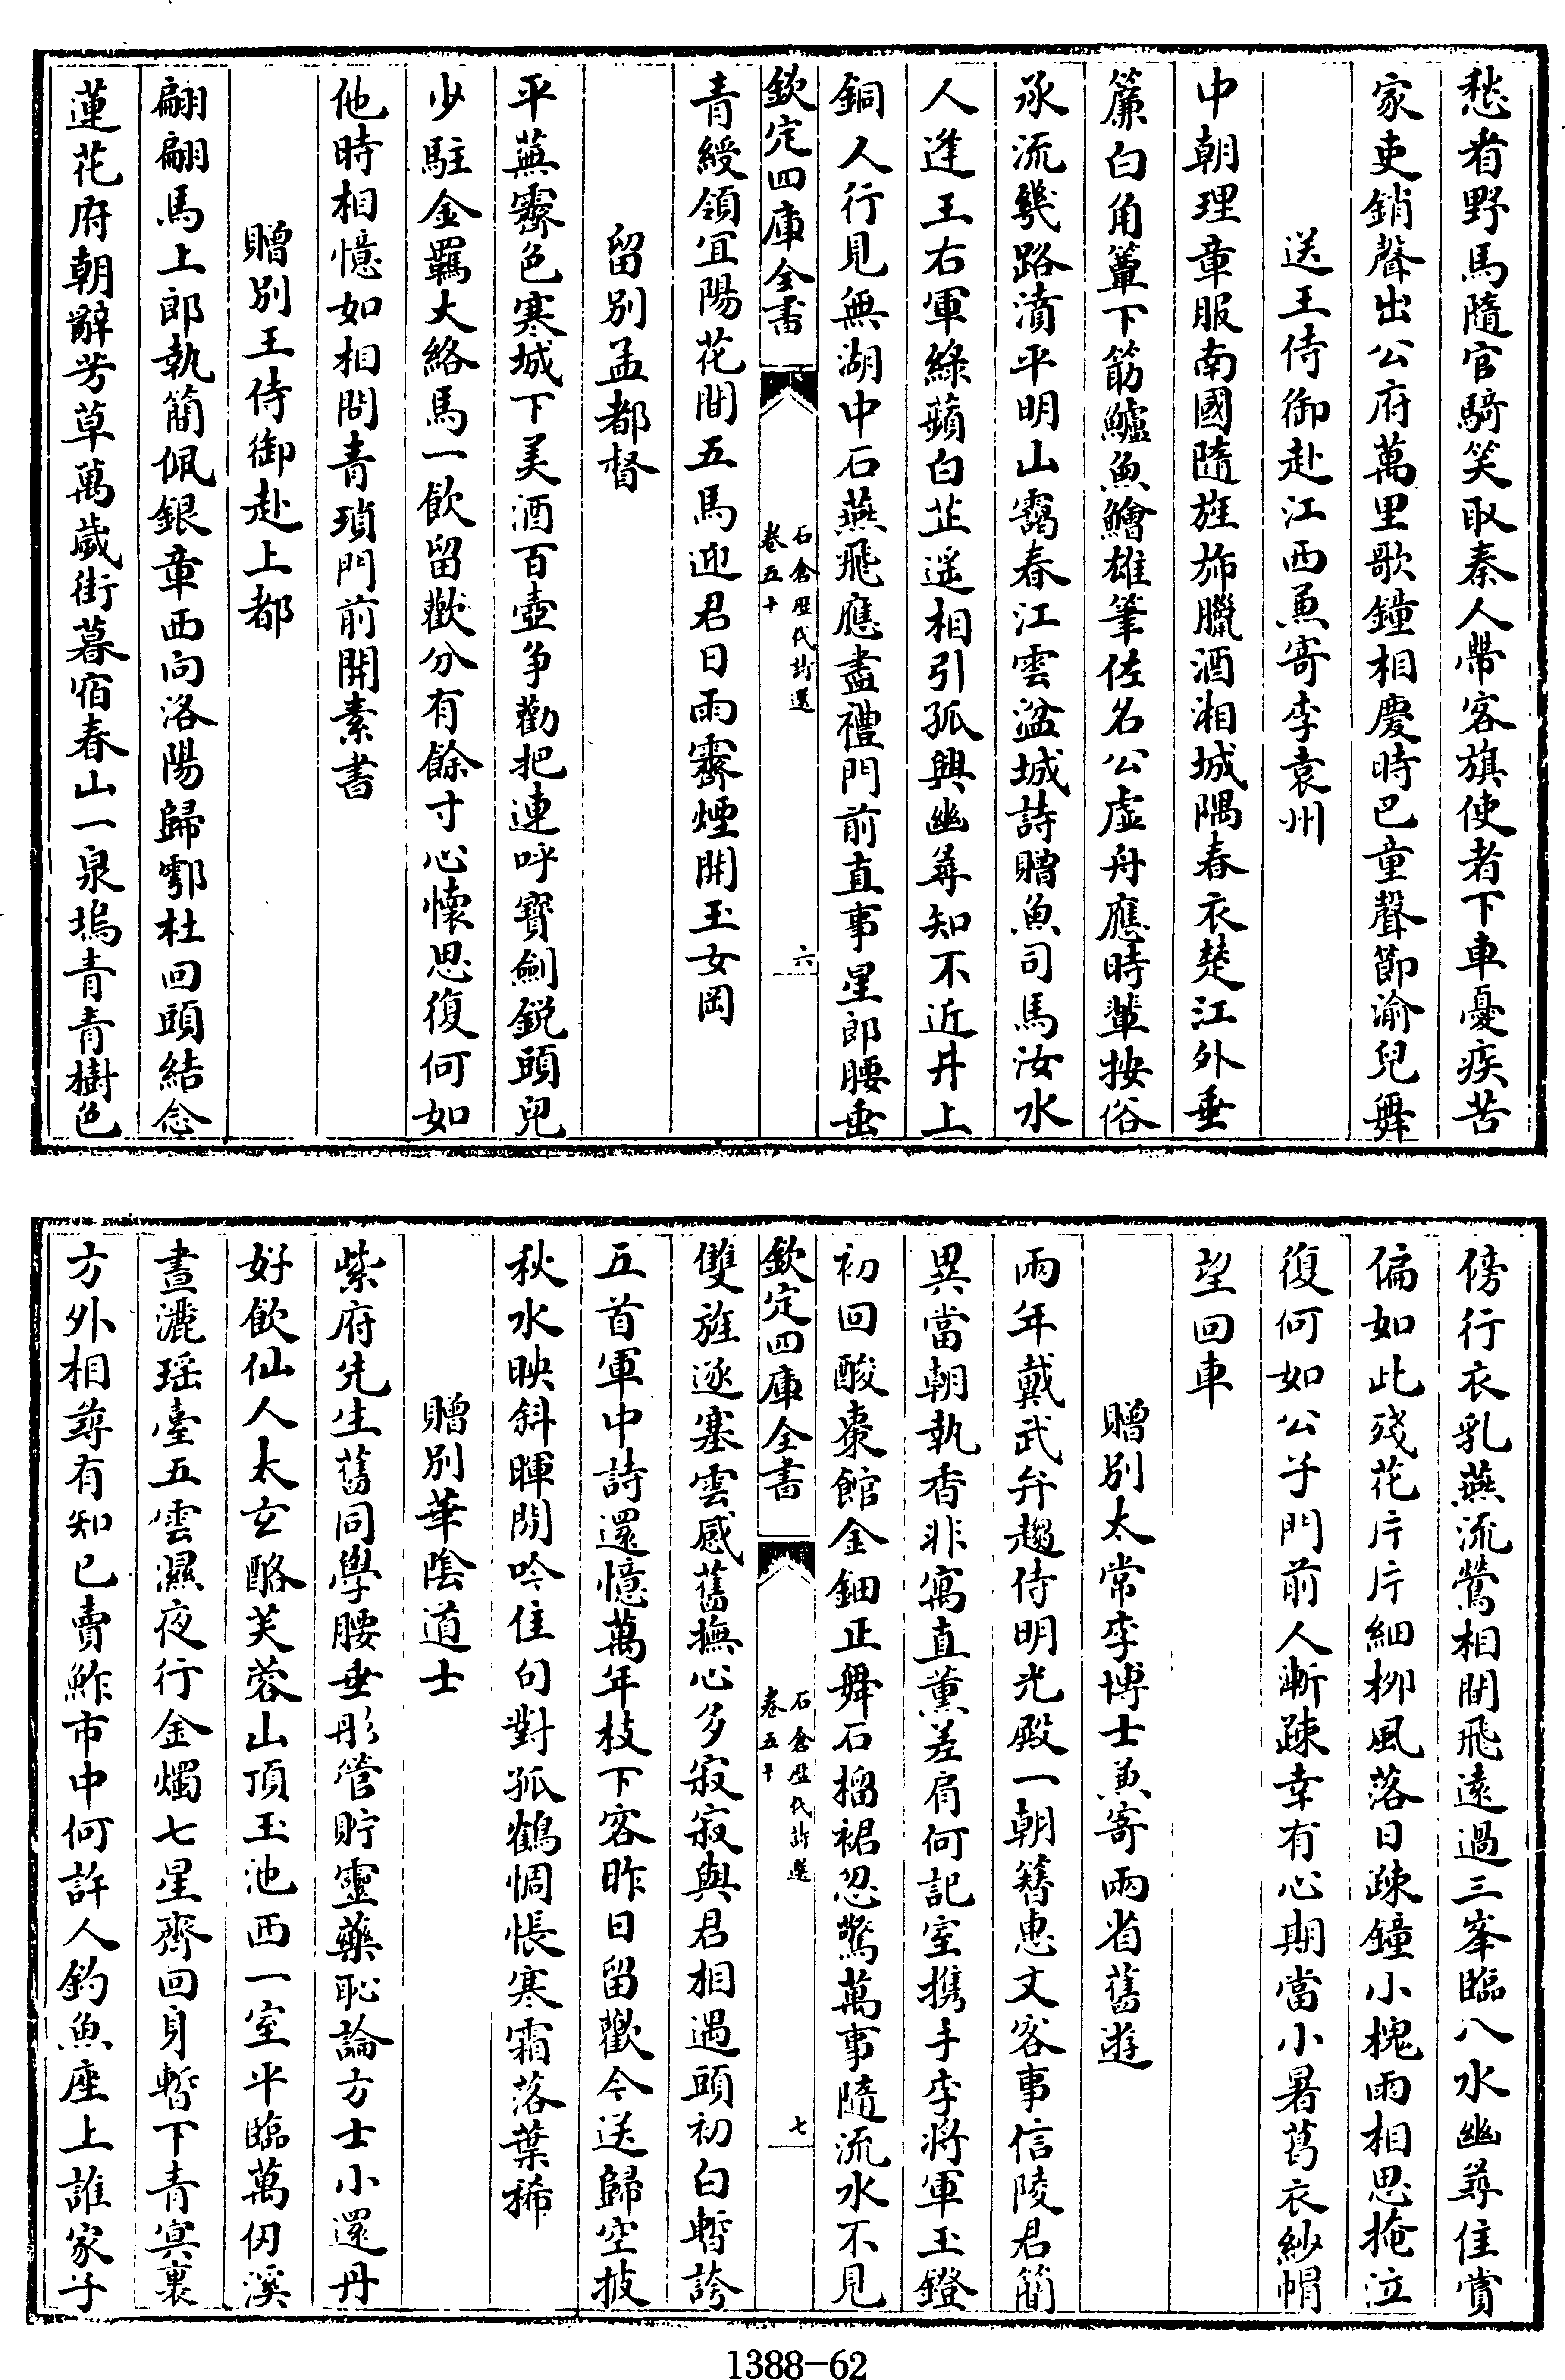 愁看野馬隨官騎笑取秦人帶客旗使者下車憂疾苦
家吏銷聲出公府萬里歌鐘相慶時巴童聲節渝兒舞
送王侍御赴江西兼寄李袁州
中朝理章服南國隨旌旆臘酒湘城隅春衣楚江外垂
簾白角簟下筯鱸魚鱠雄筆佐名公虛舟應時輩按俗
承流幾路清平明山靄春江雲湓城詩贈魚司馬汝水
人逢王右軍綠蘋白芷遥相引孤興幽尋知不近井上
銅人行見無湖中石燕飛應盡禮門前直事星郎腰垂
欽定四庫全書
石倉歷代詩選
卷五十
六
青綬領宜陽花間五馬迎君日雨霽煙開玉女岡
留別孟都督
平蕪霽色寒城下美酒百壺争勸把連呼寶劍鋭頭兒
少駐金羈大絡馬一飲留歡分有餘寸心懷思復何如
他時相憶如相問青瑣門前開素書
贈別王侍御赴上都
翩翩馬上郎執簡佩銀章西向洛陽歸鄠杜回頭結念
蓮花府朝辭芳草萬歲街暮宿春山一泉塢青青樹色
傍行衣乳燕流鶯相間飛遠過三峯臨八水幽尋佳賞
偏如此殘花片片細柳風落日疎鐘小槐雨相思掩泣
復何如公子門前人漸疎幸有心期當小暑葛衣紗帽
望回車
贈別太常李博士兼寄兩省舊遊
兩年戴武弁趨侍明光殿一朝簪惠文客事信陵君簡
異當朝執香非寓直薰差肩何記室携手李將軍玉鐙
初回酸棗館金鈿正舞石榴裙忽驚萬事隨流水不見
欽定四庫全書
石倉歷代詩選
卷五十
七
雙旌逐塞雲感舊撫心多寂寂與君相遇頭初白暫誇
五首軍中詩還憶萬年枝下客昨日留歡今送歸空披
秋水映斜暉閒吟佳句對孤鶴惆悵寒霜落葉稀
贈別華陰道士
紫府先生舊同學腰垂彤管貯靈藥恥論方士小還丹
好飲仙人太玄酪芙蓉山頂玉池西一室平臨萬仞溪
晝灑瑶臺五雲濕夜行金燭七星齊回身暫下青冥裏
方外相尋有知已賣鮓市中何許人釣魚座上誰家子
1388—62